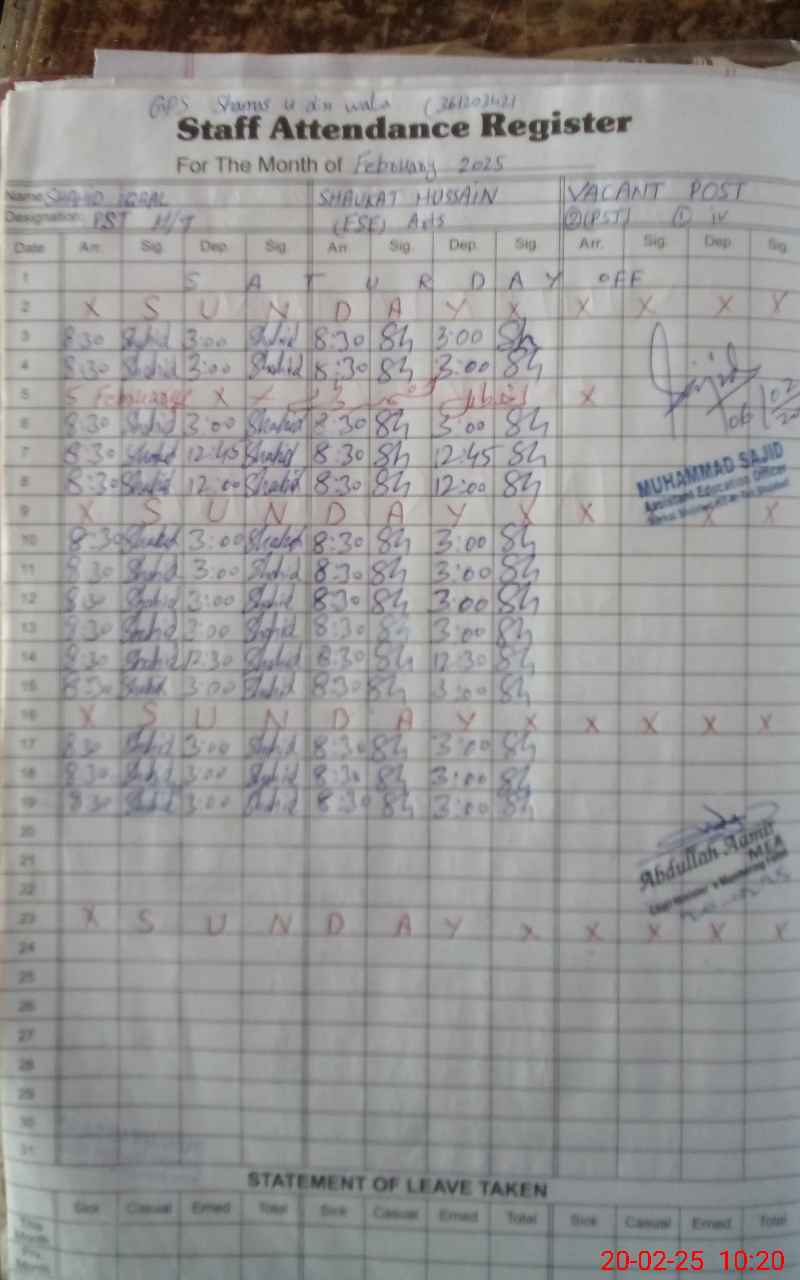 GPS Shams u din wala (36120342)
Staff Attendance Register
For The Month of February 2025
Name SHAHID IQBAL SHAUKAT HUSSAIN VACANT POST
Designation PST H/T (ESE) Arts ②(PST) ① iv
Date Arr. Sig. Dep. Sig. Arr. Sig. Dep. Sig. Arr. Sig. Dep. Sig.
1 S A T U R D A Y OFF
2 X S U N D A Y X X X X X
3 8:30 Shahid 3:00 Shahid 8:30 Sh 3:00 Sh
4 8:30 Shahid 3:00 Shahid 8:30 Sh 3:00 Sh
5 5 February X X
06/02
6 8:30 Shahid 3:00 Shahid 8:30 Sh 3:00 Sh
7 8:30 Shahid 12:45 Shahid 8:30 Sh 12:45 Sh
MUHAMMAD SAJID
8 8:30 Shahid 12:00 Shahid 8:30 Sh 12:00 Sh
Assistant Education Officer
9 X S U N D A Y X X X X
10 8:30 Shahid 3:00 Shahid 8:30 Sh 3:00 Sh
11 8:30 Shahid 3:00 Shahid 8:30 Sh 3:00 Sh
12 8:30 Shahid 3:00 Shahid 8:30 Sh 3:00 Sh
13 8:30 Shahid 3:00 Shahid 8:30 Sh 3:00 Sh
14 8:30 Shahid 12:30 Shahid 8:30 Sh 12:30 Sh
15 8:30 Shahid 3:00 Shahid 8:30 Sh 3:00 Sh
16 X S U N D A Y X X X X X
17 8:30 Shahid 3:00 Shahid 8:30 Sh 3:00 Sh
18 8:30 Shahid 3:00 Shahid 8:30 Sh 3:00 Sh
19 8:30 Shahid 3:00 Shahid 8:30 Sh 3:00 Sh
20
21
Abdullah Aamir
MEA
22
23 X S U N D A Y X X X X X
24
25
26
27
28
29
30
31
STATEMENT OF LEAVE TAKEN
Sick Casual Erned Total Sick Casual Erned Total Sick Casual Erned Total
This Month
Pre. Month
20-02-25 10:20